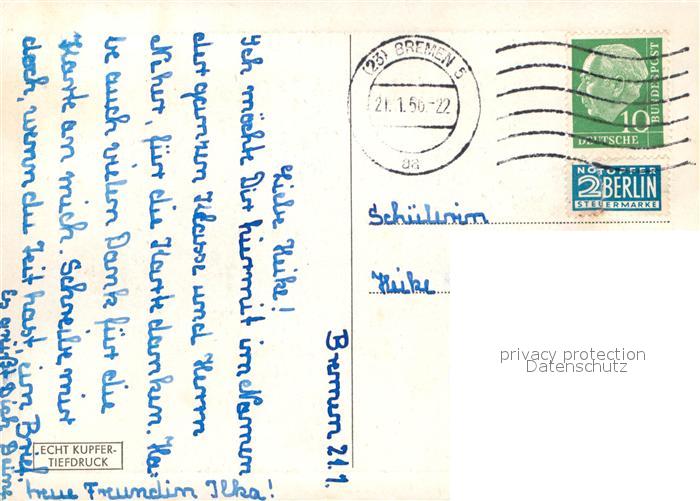 Bremen 21.1.
Liebe Heike!
Ich möchte Dir hiermit im Namen
der ganzen Klasse und Herrn
für die Karte danken. Ha=
be auch vielen Dank für die
Karte an mich. Schreibe mir
doch, wenn du Zeit hast ein Brief.
Es grüßt Dich Deine
treue Freundin Ilka!
ECHT KUPFER-
TIEFDRUCK
(23) BREMEN 5
21.1.56.-22
aa
10
DEUTSCHE
BUNDESPOST
NOTOPFER
2 BERLIN
STEUERMARKE
Schülerin
Heike
privacy protection
Datenschutz